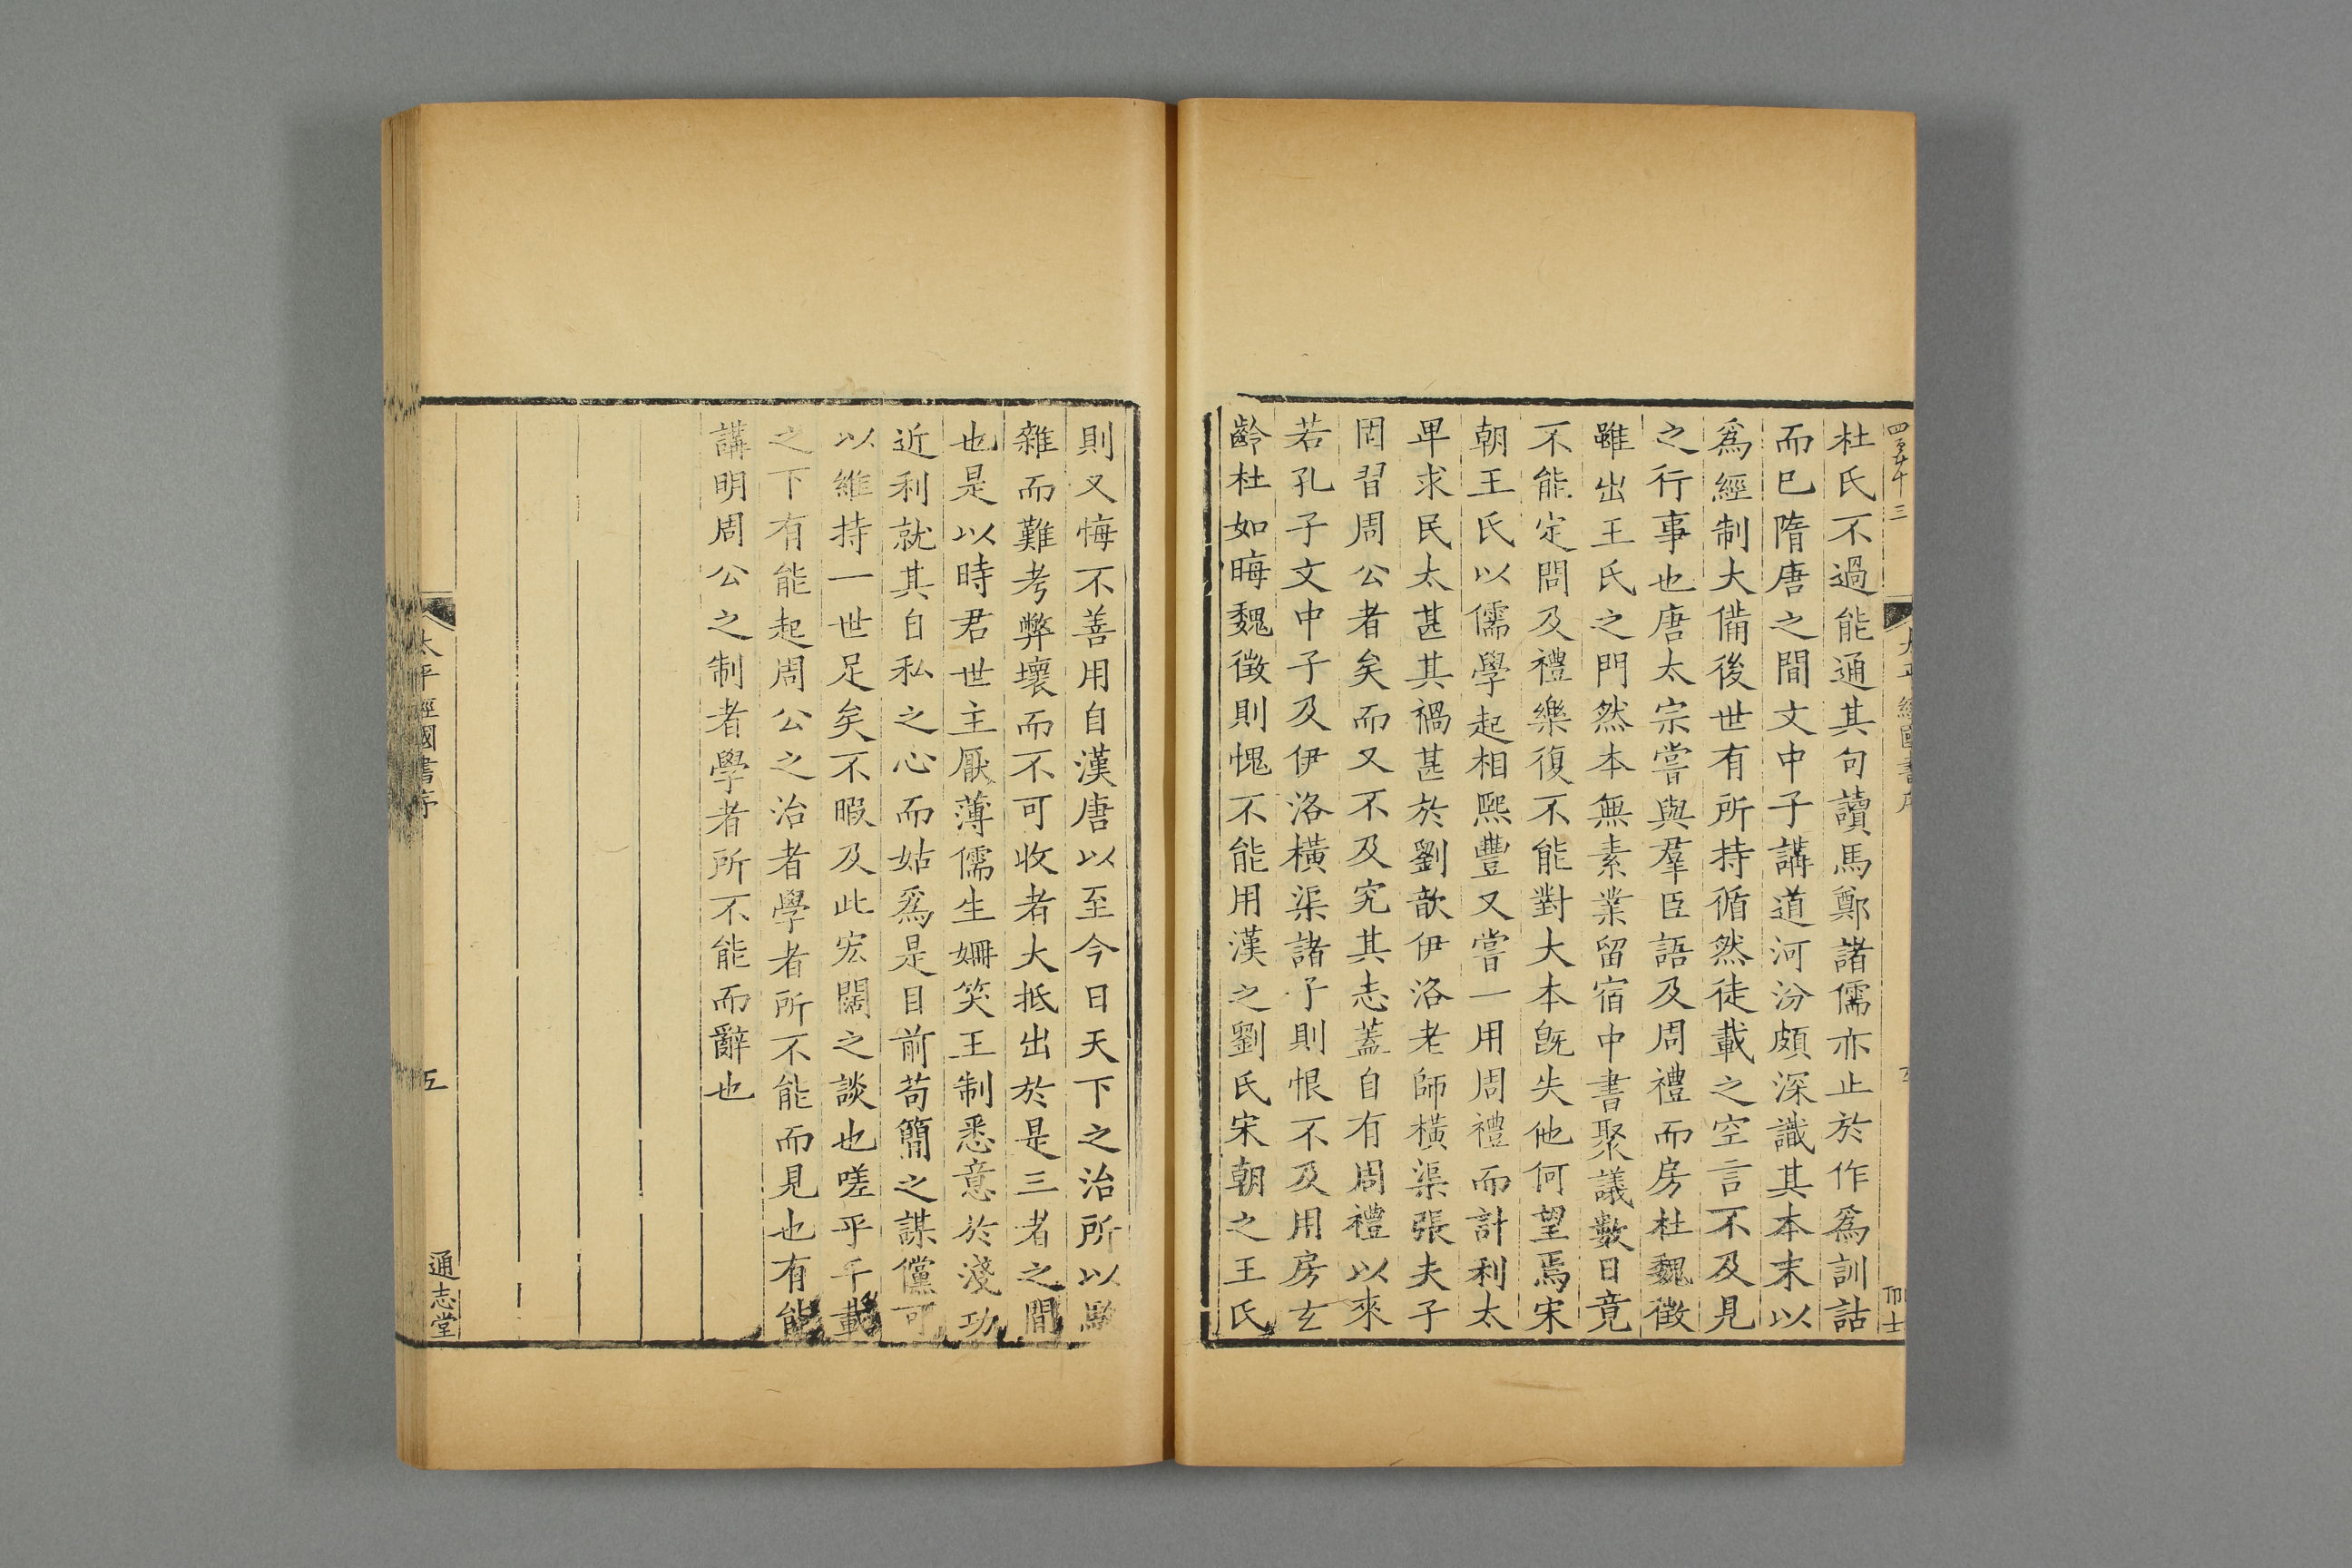 杜氏不過能通其句讀馬鄭諸儒亦止於作爲訓詁
而巳隋唐之間文中子講道河汾頗深識其本末以
爲經制大備後世有所持循然徒載之空言不及見
之行事也唐太宗嘗與羣臣語及周禮而房杜魏徵
雖出王氏之門然本無素業留宿中書聚議數日竟
不能定問及禮樂復不能對大本旣失他何望焉宋
朝王氏以儒學起相熙豐又嘗一用周禮而計利太
卑求民太甚其禍甚於劉歆伊洛老師橫渠張夫子
固習周公者矣而又不及究其志蓋自有周禮以來
若孔子文中子及伊洛橫渠諸子則恨不及用房玄
齡杜如晦魏徵則愧不能用漢之劉氏宋朝之王氏
則又悔不善用自漢唐以至今日天下之治所以
雜而難考弊壞而不可收者大抵出於是三者之間
也是以時君世主厭薄儒生姍笑王制悉意於淺功
近利就其自私之心而姑爲是目前苟簡之謀儻可
以維持一世足矣不暇及此宏闊之談也嗟乎千載
之下有能起周公之治者學者所不能而見也有能
講明周公之制者學者所不能而辭也
太平經國書序
五
通志堂